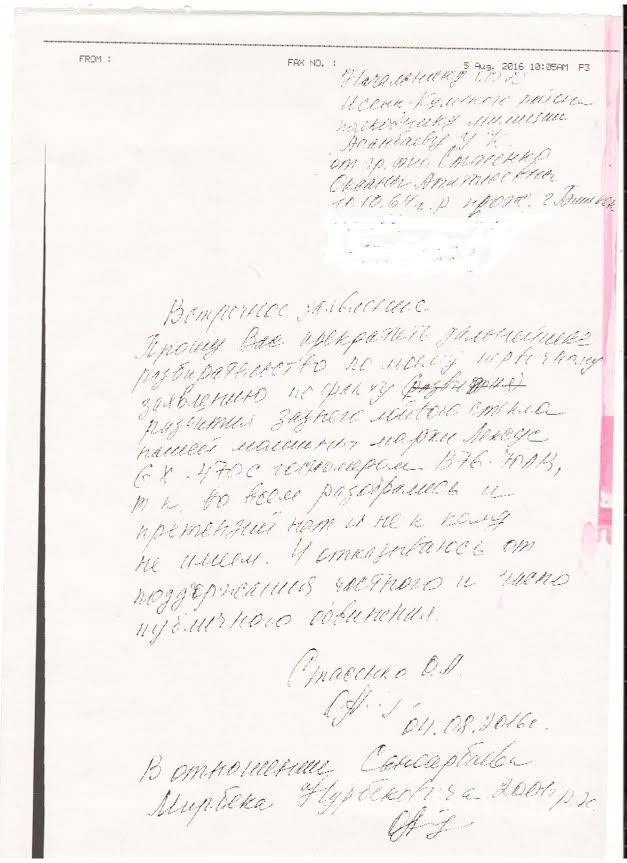 FROM : FAX NO. : 5 Aug. 2016 10:05AM P3
Начальнику
Иссык-Кульского района
полковнику милиции
Асанбаеву У К
от гр. Стасенко
Оксаны Анатольевны
10.10.64 г.р. прож. г. Бишкек
Встречное заявление.
Прошу Вас прекратить дальнейшее
разбирательство по моему
заявлению по факту
разбития заднего стекла
нашей машины марки Лексус
GX. 470 с госномером B76.
т к. во всем разобрались и
претензий нет и не к кому
не имеем. И отказываюсь от
поддержания частного и часно
публичного обвинения.
Стасенко О.А.
04.08.2016г.
В отношение
Мирбека Нурбековича 2001 г.р.